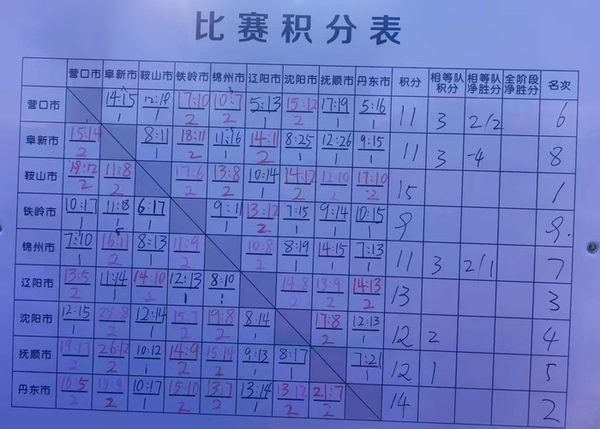 比赛积分表
营口市 阜新市 鞍山市 铁岭市 锦州市 辽阳市 沈阳市 抚顺市 丹东市 积分 相等队积分 相等队净胜分 全阶段净胜分 名次
营口市 14:15 1 12:19 1 17:10 2 10:7 2 5:13 1 15:12 2 17:19 1 5:16 1 11 3 2/2 6
阜新市 15:14 2 8:11 1 18:11 2 11:16 1 14:11 2 8:25 1 12:26 1 9:15 1 11 3 -4 8
鞍山市 19:12 2 11:8 2 17:6 2 13:8 2 10:14 1 14:12 2 12:10 2 17:10 2 15 1
铁岭市 10:17 1 11:18 1 6:17 1 9:11 1 13:12 2 7:15 1 9:14 1 10:15 1 9 9
锦州市 7:10 1 16:11 2 8:13 1 11:9 2 10:8 2 8:19 1 14:15 1 7:13 1 11 3 2/1 7
辽阳市 13:5 2 11:14 1 14:10 2 12:13 1 8:10 1 14:8 2 13:9 2 14:13 2 13 3
沈阳市 12:15 1 25:8 2 12:14 1 15:7 2 19:8 2 8:14 1 17:8 2 12:13 1 12 2 4
抚顺市 19:17 2 26:12 2 10:12 1 14:9 2 15:14 2 9:13 1 8:17 1 7:21 1 12 1 5
丹东市 16:5 2 15:9 2 10:17 1 15:10 2 13:7 2 13:14 1 13:12 2 21:7 2 14 2